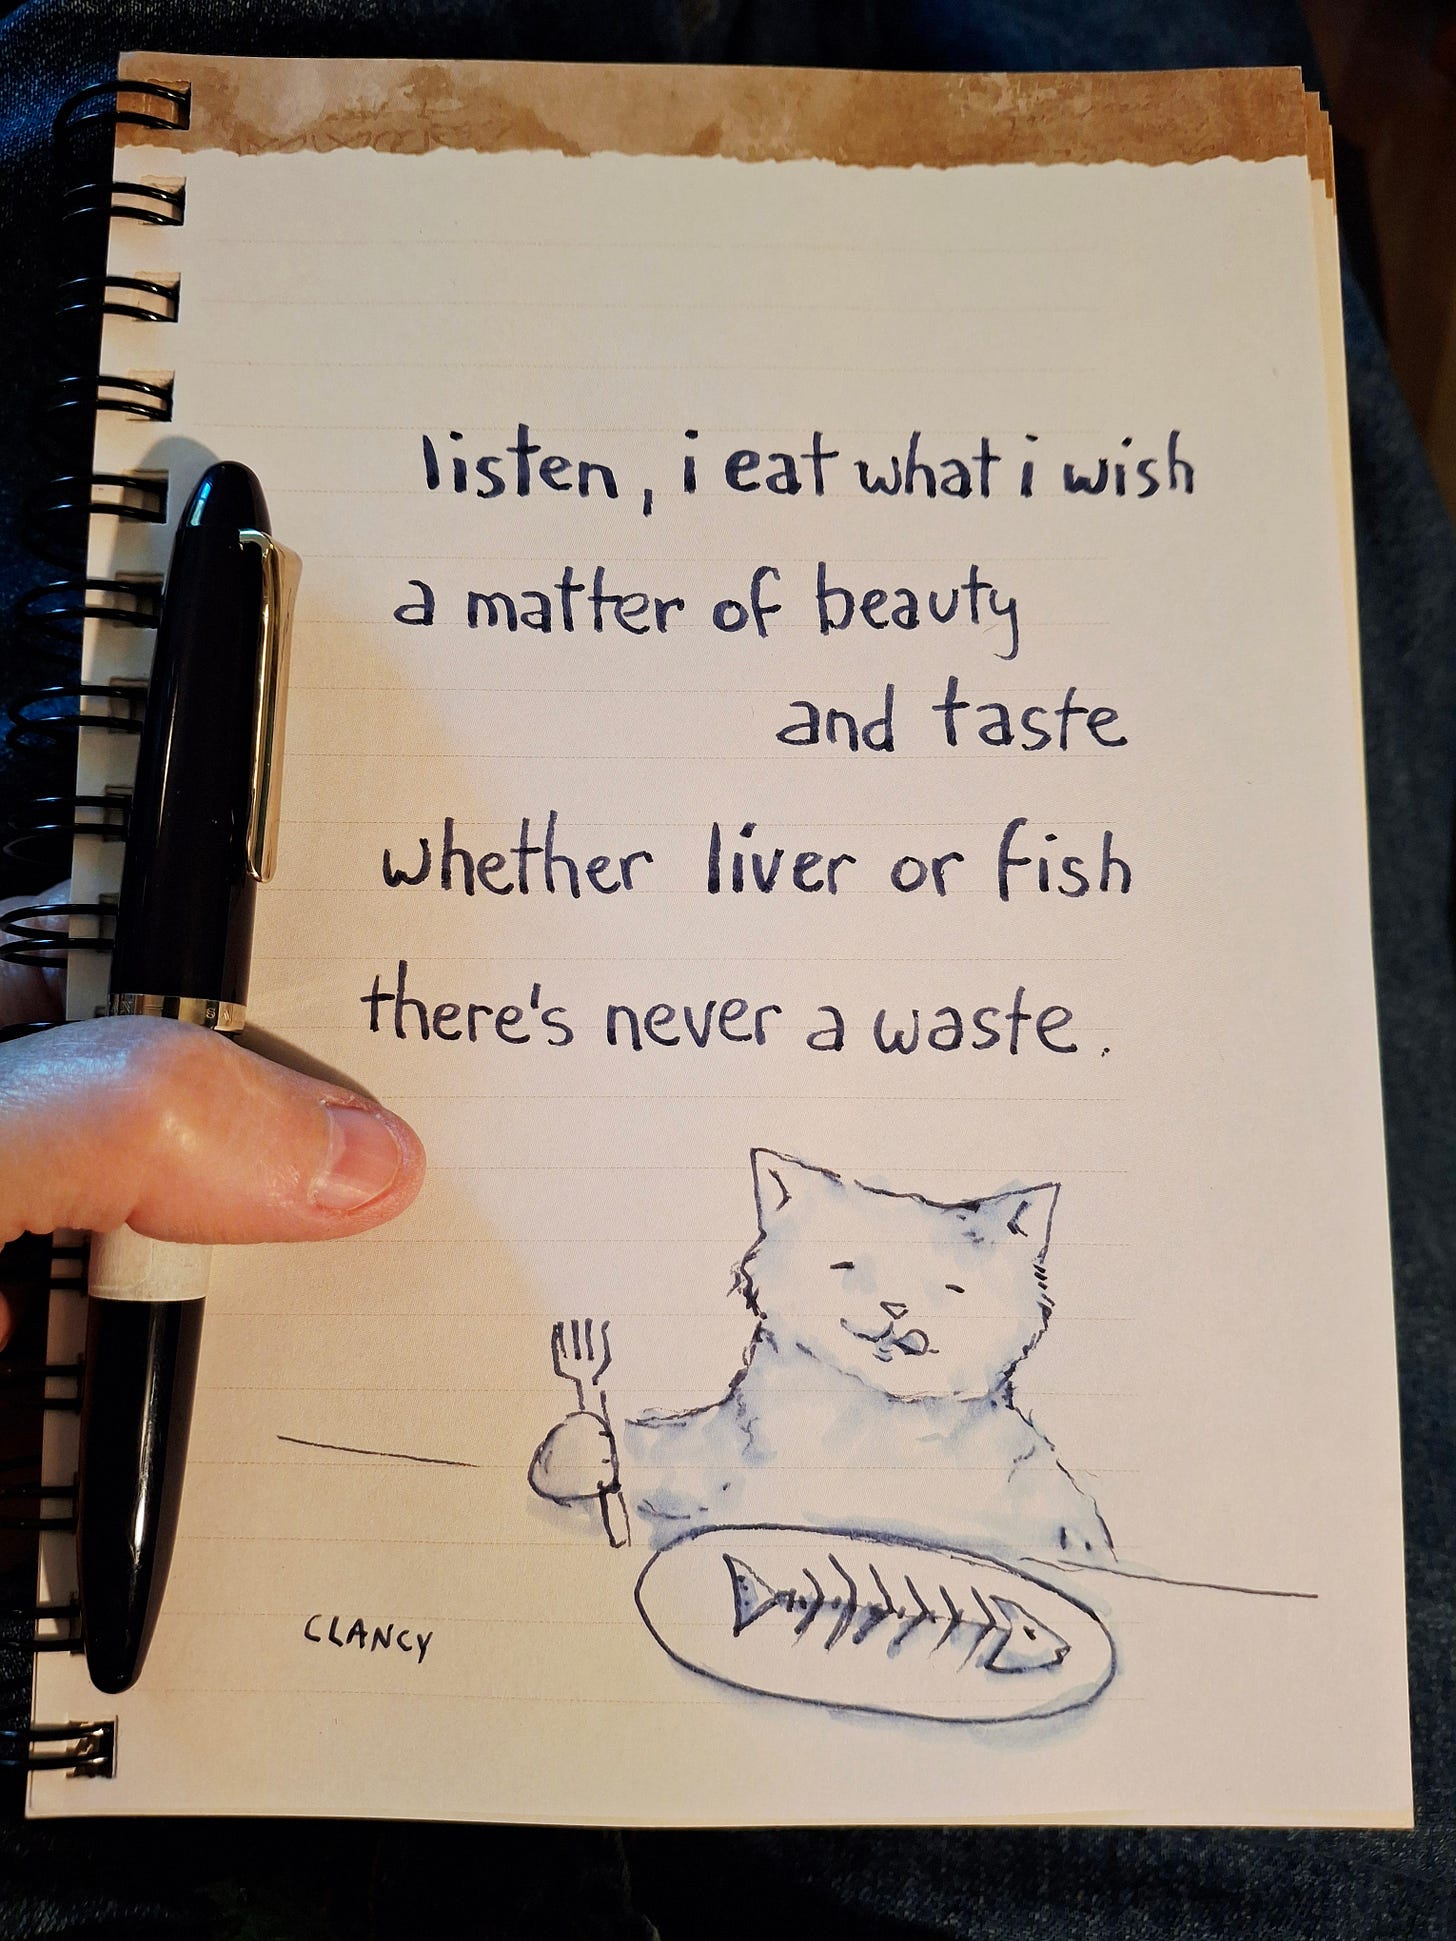 listen, i eat what i wish
a matter of beauty
and taste
whether liver or fish
there's never a waste.
CLANCY